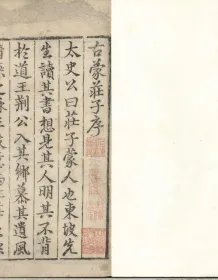 古蒙莊子序
太史公曰莊子蒙人也東坡先
生讀其書想見其人明其不背
於道王荊公入其鄉慕其遺風